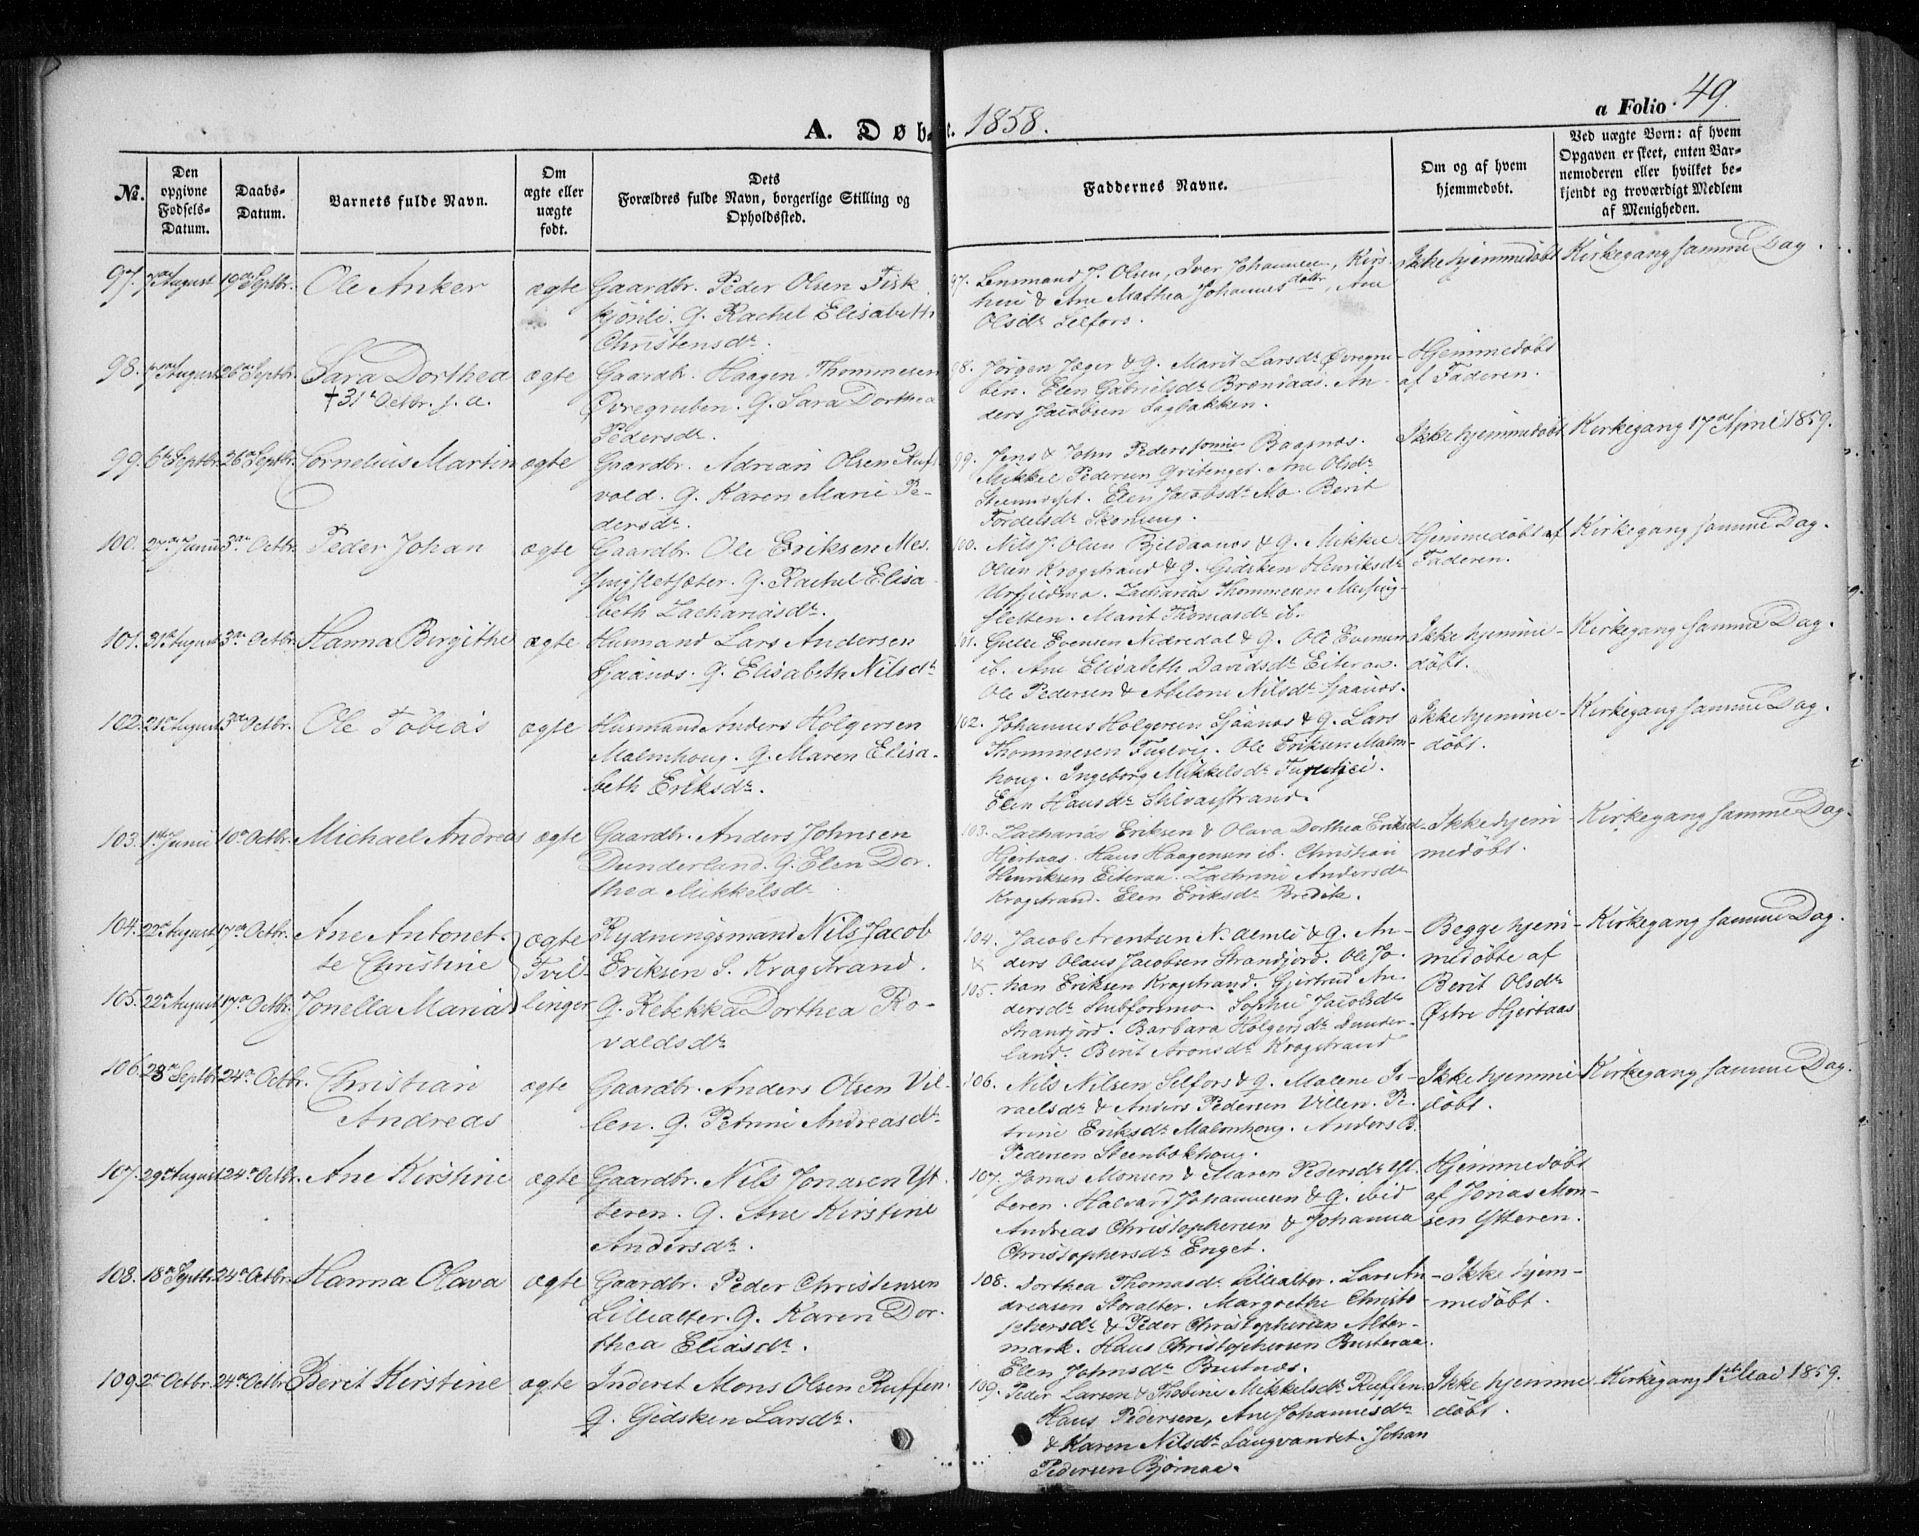 A. Døbte. 1858.
a Folio 49.
No.
Den opgivne Fødsels-Datum.
Daabs-Datum.
Barnets fulde Navn.
Om ægte eller uægte født.
Dets Forældres fulde Navn, borgerlige Stilling og Opholdssted.
Faddernes Navne.
Om og af hvem hjemmedøbt.
Ved uægte Børn: af hvem Opgaven er skeet, enten Barnemoderen eller hvilket bekjendt og troværdigt Medlem af Menigheden.
97. 7de August 19de Septbr. Ole Anker ægte Gaardbr. Peder Olsen Fisk
kjønli. G. Rachel Elisabeth
Christensdr.
97. Lensmand J. Olsen, Iver Johannesen, Kirs-
tine & Ane Mathea Johannesdøttr, Ane
Olsdr Selfors.
Ikke hjemmedøbt
Kirkegang samme Dag.
98. August 26de Septbr. Sara Dorthea ægte Gaardbr. Haagen Thommesen
† 31te Octbr. s. a.
Øvregruben. G. Sara Dorthea
Pedersdr.
98. Jørgen Jæger & G. Marit Larsdr Øvregru-
ben. Elen Gabrielsdr Brændaas. An-
ders Jacobsen Lagbakken.
Hjemmedøbt
af Faderen.
99. 6te Septbr. 26de Septbr. Cornelius Martin ægte Gaardbr. Adrian Olsen Rufs-
vold. G. Karen Marie Pe-
dersdr.
99. Jens & John Pederssønner Baasnæs.
Mikkel Pedersen Qvitenget. Ane Olsdr
Elen Jacobsdr Mo. Berit
Fordelsdr Skonseng.
Ikke hjemmedøbt
Kirkegang 17de April 1859.
100. 27de Junii 3die Octbr. Peder Johan ægte Gaardbr. Ole Eriksen Mes-
singsletsæter. G. Rachel Elisa-
beth Zachariasdr.
100. Nils J. Olsen Bjeldaanæs & G. Mikkel
Olsen Krogstrand & G. Gidsken Henriksdr
Urfieldmo. Zacharias Thommesen Messing-
sletten. Marit Thomasdr ib.
Hjemmedøbt af
Faderen.
Kirkegang samme Dag.
101. 31te August 3die Octbr. Hanna Birgithe ægte Husmand Lars Andersen
Sjaanæs. G. Elisabeth Nilsdr
101. Gulle Evensen Nedredal & G. Ole Evensen
ib. Ane Elisabeth Davidsdr Eiteraa.
Ole Pedersen & Abelone Nilsdr Sjaanæs.
Ikke hjemme-
døbt.
Kirkegang samme Dag.
102. 21de August 3die Octbr. Ole Tobias ægte Husmand Anders Holgersen
Malmhoug. G. Maren Elisa-
beth Eriksdr.
102. Johannes Holgersen Sjaanæs & G. Lars
Thommesen Fuglvig. Ole Eriksen Malm-
houg. Ingeborg Mikkelsdr
Elen Hansdr Silvasstrand.
Ikke hjemme-
døbt.
Kirkegang samme Dag.
103. 1ste Junii 10de Octbr. Michael Andreas ægte Gaardbr. Anders Johnsen
Dunderland. G. Elen Dor-
thea Mikkelsdr
103. Zacharias Eriksen & Olava Dorthea Eriksdr
Hjertaas. Hans Haagensen ib. Christian
Henriksen Eiteraa. Zachrine Andersdr
Krogstrand. Elen Eriksdr Bredik.
Ikke hjem-
medøbt.
Kirkegang samme Dag.
104. 22de August 17de Octbr. Ane Antonet-
te Christine
ægte
Tvil-
linger
Rydningsmand Nils Jacob
Eriksen S. Krogstrand.
105. 22de August 17de Octbr. Jonella Maria
G. Rebekka Dorthea Ro-
valdsdr
104. & 105. Jacob Arentsen N. Æmli & G. An-
ders Olaus Jacobsen Strandjord. Ole Jo-
han Eriksen Krogstrand. Gjertrud An-
dersdr Stubforsmo. Sophie Jacobsdr
Strandjord. Barbara Holgersdr Dunder-
land. Berit Aronsdr Krogstrand
Begge hjem-
medøbte af
Berit Olsdr
Østre Hjertaas
Kirkegang samme Dag.
106. 28de Septbr. 24de Octbr. Christian
Andreas
ægte Gaardbr. Anders Olsen Vil-
len. G. Petrine Andreasdr.
106. Nils Nilsen Selfors & G. Malene Is-
raelsdr & Anders Pedersen Villen. Pe-
trine Eriksdr Malmhoug. Anders B.
Pedersen Steenbokhoug.
Ikke hjemme
døbt.
Kirkegang samme Dag.
107. 29de August 24de Octbr. Ane Kirstine ægte Gaardbr. Nils Jonasen Yt-
teren. G. Ane Kirstine
Andersdr.
107. Jonas Monsen & Maren Pedersdr Yt-
teren. Halvard Johannesen & G. ibid
Andreas Christophersen & Johanna
Christophersdr Enget.
Hjemmedøbt
af Jonas Mon-
sen Ytteren.
108. 18de Septbr. 24de Octbr. Hanna Olava ægte Gaardbr. Peder Christensen
Lillealter. G. Karen Dor-
thea Eliasdr.
108. Dorthea Thomasdr Lillealter. Lars An-
dreasen Storalter. Margrethe Christo-
phersdr & Peder Christophersen Alter-
mark. Hans Christophersen Busteraa.
Elen Johnsdr Bustnæs.
Ikke hjem-
medøbt.
109. 2de Octbr. 24de Octbr. Berit Kirstine ægte Inderst Mons Olsen Ruffen.
G. Gidsken Larsdr.
109. Peder Larsen & Thobine Mikkelsdr Ruffen.
Hans Pedersen, Ane Johannesdr
& Karen Nilsdr Langvandet. Johan
Pedersen Bjørnaa.
Ikke hjemme
døbt.
Kirkegang 1ste Mai 1859.